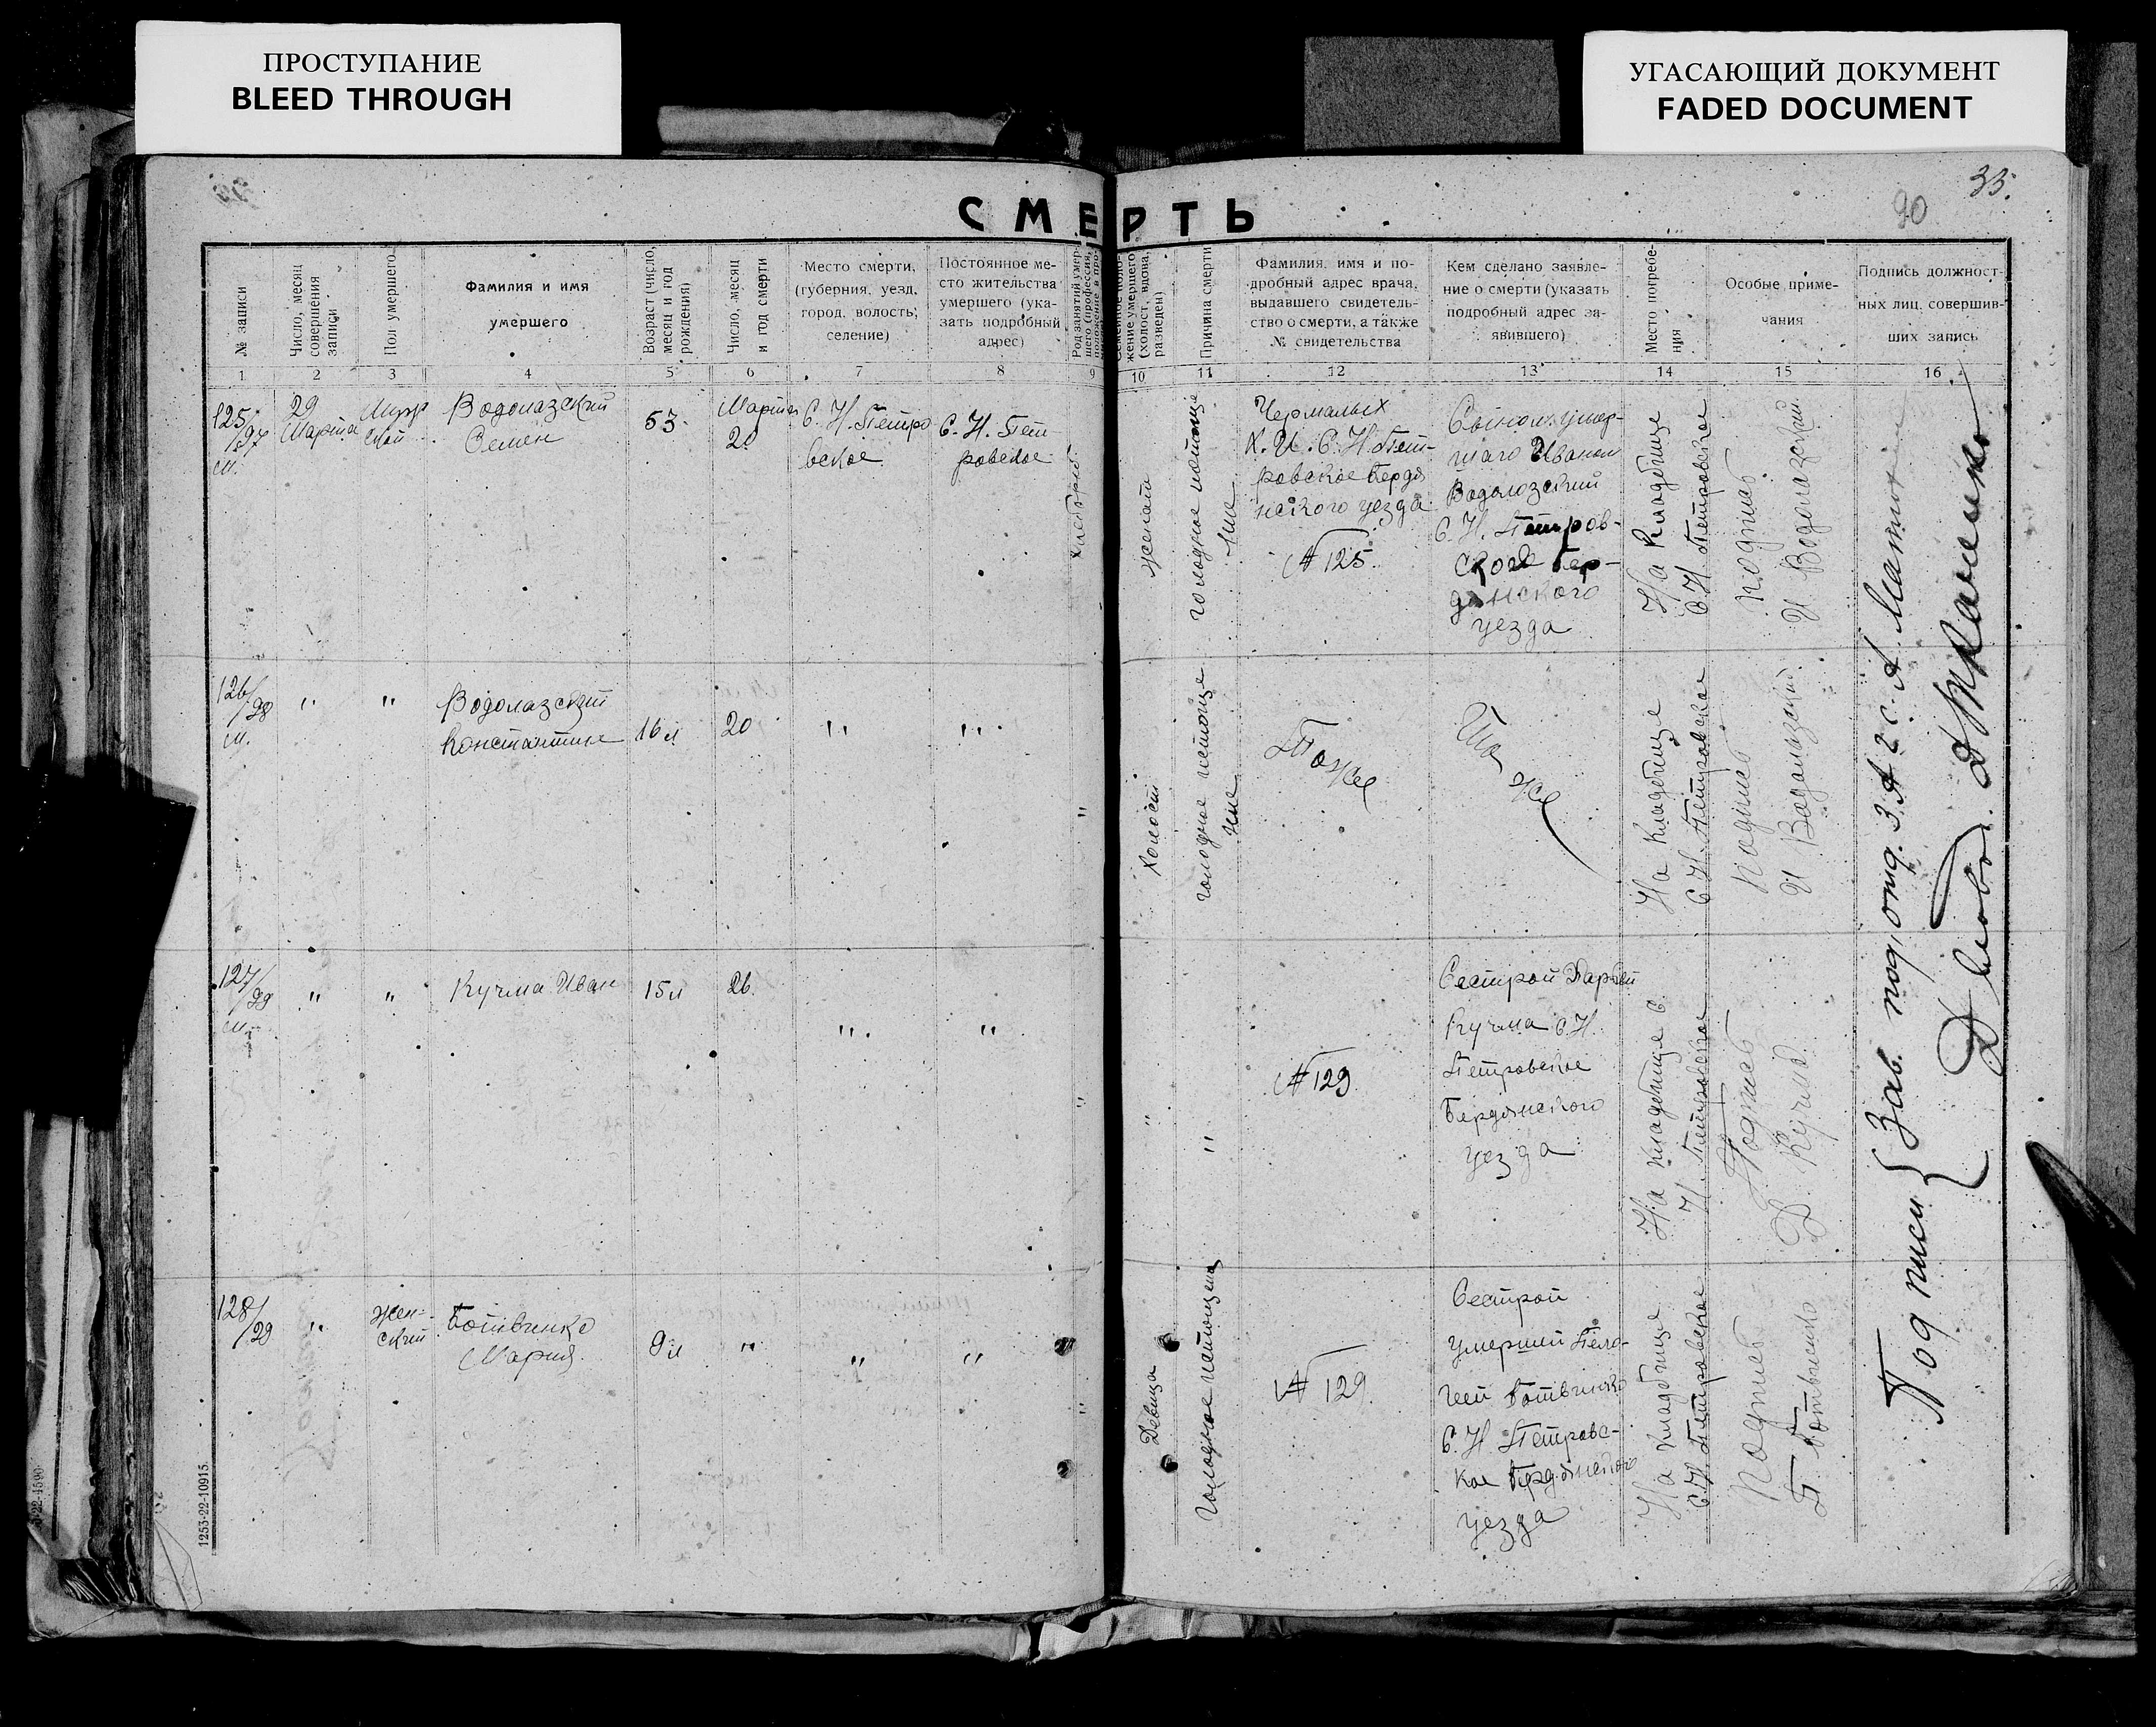 ПРОСТУПАНИЕ
BLEED THROUGH
УГАСАЮЩИЙ ДОКУМЕНТ
FADED DOCUMENT
33.
90
СМЕРТЬ
№ записи
Число, месяц
совершения
записи
Пол умершего
Фамилия и имя
умершего
Возраст (число,
месяц и год
рождения)
Число, месяц
и год смерти
Место смерти,
(губерния, уезд,
город, волость,
селение)
Постоянное ме-
сто жительства
умершего (ука-
зать подробный
адрес)
Род занятий умер-
шего (профессия,
жение умершего
(холост, вдова,
разведен)
Причина смерти
Фамилия, имя и по-
дробный адрес врача,
выдавшего свидетель-
ство о смерти, а также
№ свидетельства
Кем сделано заявле-
ние о смерти (указать
подробный адрес за-
явившего)
Место погребе-
ния
Особые приме-
чания
Подпись должност-
ных лиц, совершив-
ших запись
1 2 3 4 5 6 7 8 9 10 11 12 13 14 15 16
125/97
м.
29
Марта
Муж
ской
Водолазский
Семен
53
Марта
20
С. Н. Петро
вское
С. Н. Пет
ровское
Хлебороб
женат
голодное истоще
ние
Чермалых
К. И. С. Н Пет-
ровское Бердя
нского уезда
№ 125.
Сыном умер-
шаго Иваном
Водолозский
С. Н. Петров-
ское Бер-
дянского
уезда
На кладбище
С. Н. Петровское
Подпись
И Водолазский
126/98
м.
"
"
Водолазский
Константин
16 л
20
"
"
"
Холост
голодное истоще
ние
То же
То
же
На кладбище
С. Н. Петровское
Подпись
И Водолазский
127/99
м.
"
"
Кучма Иван
15 л
26.
"
"
"
"
"
№ 129
Сестрой
Кучма С. Н.
Петровское
Бердянского
уезда
На кладбище С.
Н. Петровское
Подпись
Кучма
128/29
"
Жен-
ский
Ботвинко
Мария
9 л
"
"
"
"
Девица
Голодное истощение
№ 129
Сестрой
умершей Пела-
геи Ботвинко
С. Н Петровс-
кое Бердянского
уезда
На кладбище
С. Н. Петровское
Подпись
П Ботвинко
Подписи { Зав. под, отд. З. А. Г. С. А.
Делов.
1253-22-10915.